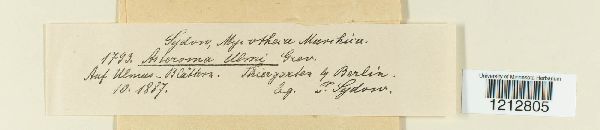 Sydow, Mycotheca Marchica.
1793. Asteroma Ulmi Grev.
Auf Ulmus-Blättern. Thiergarten b/ Berlin.
10. 1887. lg. P. Sydow.
University of Minnesota Herbarium
1212805